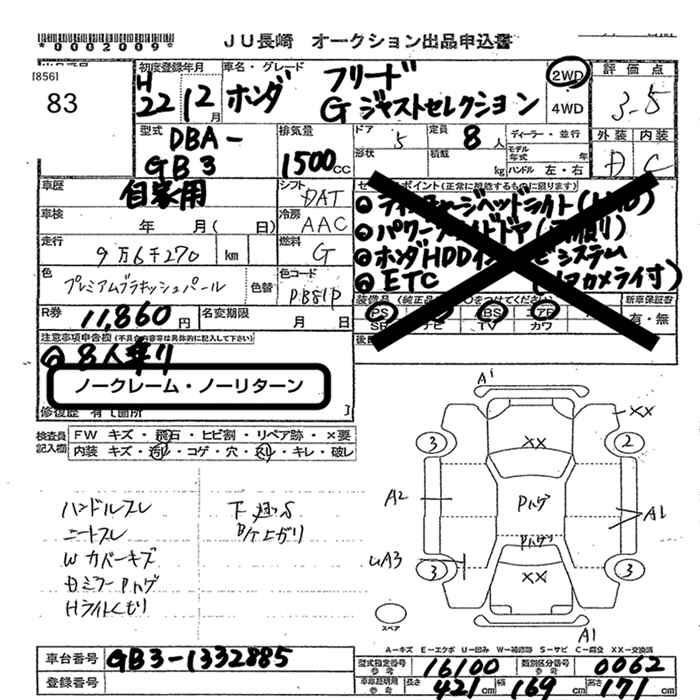 *0002009*
JU長崎 オークション出品申込書
[856]
83
初度登録年月
H
22 12月
車名・グレード
ホンダ フリード
G ジャストセレクション
2WD
4WD
評価点
3.5
外装 内装
D C
型式
DBA-
GB3
排気量
1500CC
ドア 5
定員 8人
形状
積載 kg
ディーラー・並行
モデル年式 年
ハンドル 左・右
車歴
自家用
シフト
DAT
車検
年 月( 日)
冷房
AAC
走行
9万6千270 km
燃料
G
色
プレミアムブラキッシュパール
色替
色コード
R券
11,860円
名変期限
月 日
セールスポイント(正常に機能するものに限ります)
パワースライドドア
ETC
PS
TV
カワ
新車保証書
有・無
注意事項申告欄(不具合内容等は具体的に記入して下さい)
8人乗り
ノークレーム・ノーリターン
修復歴 有[箇所 ]
検査員
記入欄
FW キズ・飛石・ヒビ割・リペア跡・×要
内装 キズ・汚れ・コゲ・穴・スレ・キレ・破レ
ハンドルスレ
シートスレ
W カバーキズ
Dミラー Pハゲ
Hライトくもり
A1
XX
3
XX
2
A2
Pハゲ
A1
Pハゲ
A3
3
XX
3
スペア
A1
A-キズ E-エクボ U-凹み W-補修跡 S-サビ C-腐食 XX-交換済
車台番号
GB3-1332885
登録番号
型式指定番号
参考
16100
類別区分番号
参考
0062
車車証明用
参考
長さ 421cm
幅 169cm
高さ 171cm